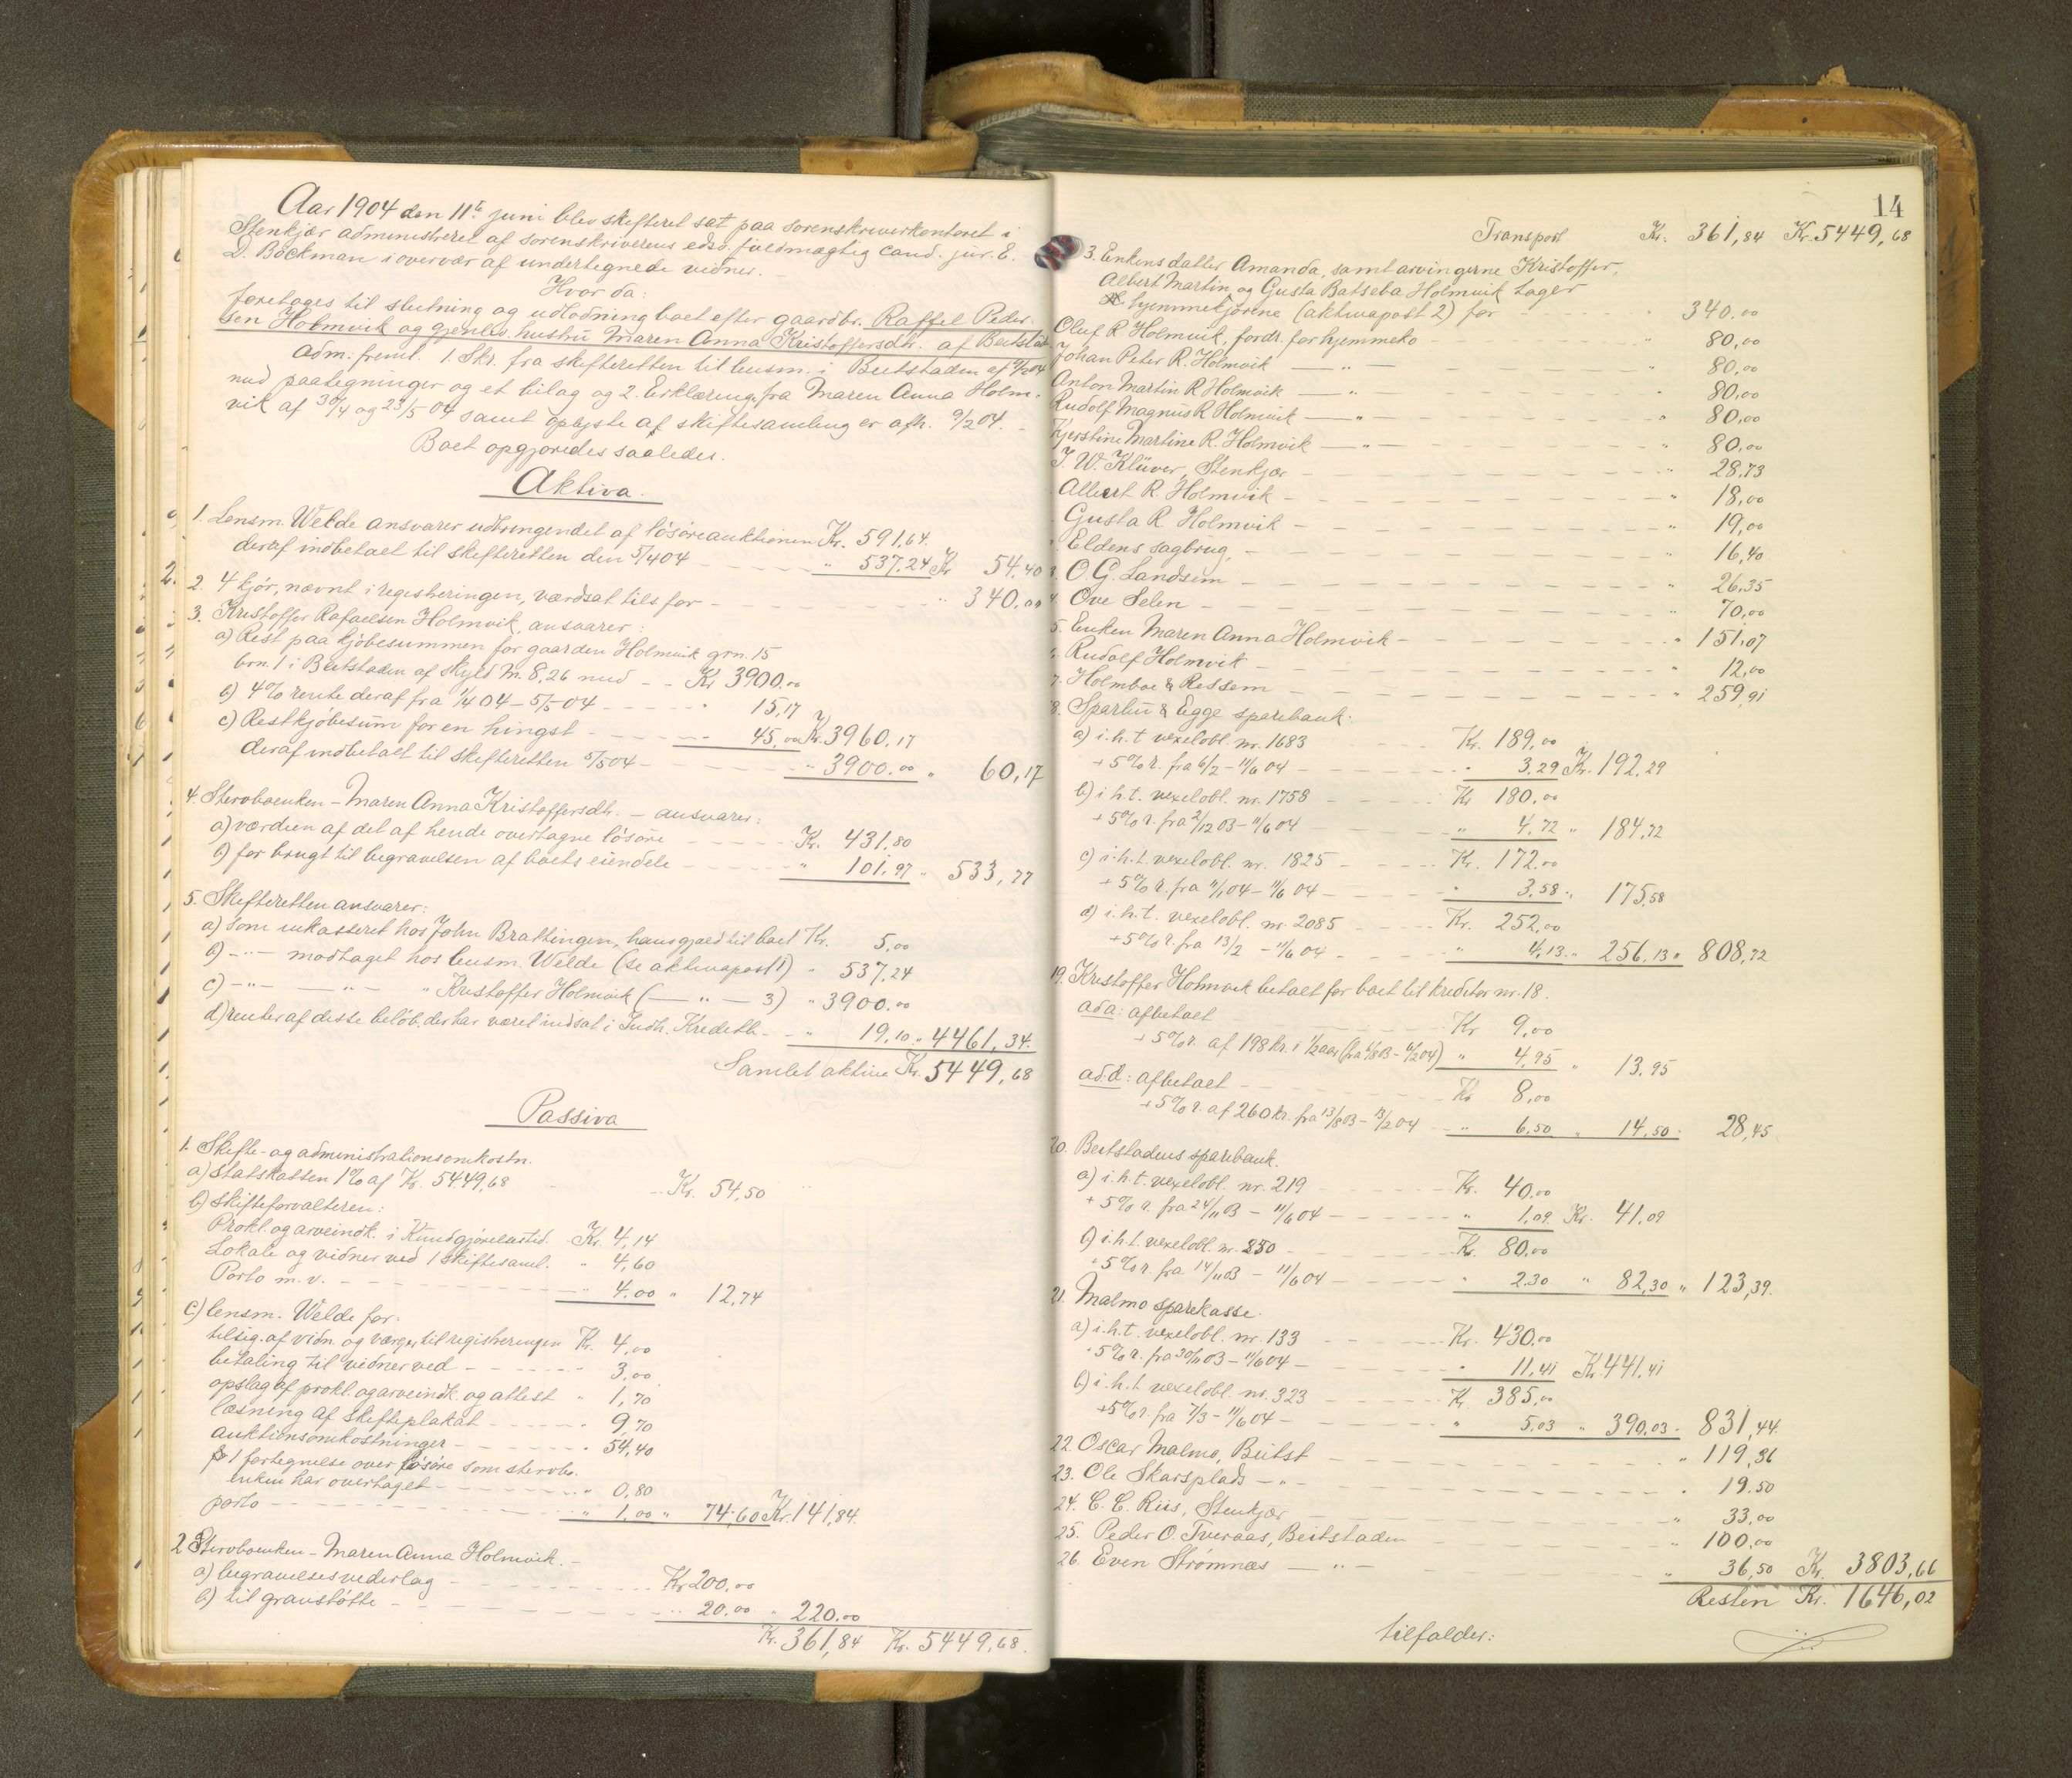 Aar 1904 den 11te juni blev skifteret sat paa sorenskriverkontoret i
Stenkjær administreret af sorenskriverens edsv. fuldmægtig cand. jur. E.
D. Böckman i overvær af undertegnede vidner. —
Hvor da:
foretoges til slutning og udlodning boet efter gaardbr. Raffel Peder-
sen Holmvik og gjenlev. hustru Maren Anna Kristoffersdtr. af Beitstad.
Adm. freml. 1. Skr. fra skifteretten til lensm. i Beitstaden af 9/2 04
med paategninger og et bilag og 2. Erklæring fra Maren Anna Holm-
vik af 30/4 og 23/5 04 samt oplyste af skiftesamling er afh. 9/2 04. —
Boet opgjordes saaledes.
Aktiva.
1. Lensm. Welde ansvarer udbringendet af lösöreauktionen Kr. 591,64.
deraf indbetalt til skifteretten den 5/4 04 — " 537.24 Kr 54,40
2. 4 kjör, nævnt i registreringen, værdsat tils for — " 340.00
3. Kristoffer Rafaelsen Holmvik, ansvarer:
a) Rest paa kjöbesummen for gaarden Holmvik grn. 15
brn. 1 i Beitstaden af skyld M. 8,26 med — Kr 3900.00
b) 4% rente deraf fra 1/4 04 – 5/5 04 — " 15,17
c) Restkjöbesum for en hingst — 45,00 Kr. 3960,17
deraf indbetalt til skifteretten 5/5 04 — " 3900.00 " 60,17
4. Stervboenken – Maren Anna Kristoffersdtr. – ansvarer:
a) værdien af det af hende overtagne lösöre — Kr. 431,80
b) for brugt til begravelsen af boets eiendele — " 101,97 " 533,77
5. Skifteretten ansvarer:
a) som inkasseret hos John Brattingen, hans gjæld til boet Kr. 5,00
b) –"– modtaget hos lensm. Welde (se aktivapost 1) " 537,24
c) –"– –"– " Kristoffer Holmvik (–"– 3) " 3900.00
d) renter af disse belöb, der har været indsat i Indh. Kreditb. — " 19,10 " 4461,34.
Samlet aktiva Kr. 5449,68
Passiva
1. Skifte- og administrationsomkostn.
a) Statskassen 1% af Kr. 5449,68 — Kr. 54,50
b) Skifteforvalteren:
Prokl. og arveindk. i Kundgjörelsestid. Kr. 4,14
Lokale og vidner ved 1 skiftesaml. " 4,60
Porto m. v. — " 4.00 " 12,74
c) lensm. Welde for:
tilsig. af vidn. og værger til registreringen Kr. 4,00
betaling til vidner ved — " 3,00
opslag af prokl. og arveindk. og attest " 1,70
læsning af skifteplakat — " 9,70
auktionsomkostninger — " 54,40
1 fortegnelse over lösöre som stervbo-
enken har overtaget — " 0,80
porto — " 1,00 " 74,60 Kr. 141,84.
2 Stervboenken – Maren Anna Holmvik. —
a) begravelsesvederlag — Kr 200,00
b) til gravstötte — " 20.00 " 220.00
Kr. 361,84 Kr. 5449,68.
14
Transport Kr. 361,84 Kr. 5449,68
3. Enkens datter Amanda, samt arvingerne Kristoffer,
Albert Martin og Gusta Batseba Holmvik tager
hjemmekjörene (aktivapost 2) for — " 340.00
Oluf R Holmvik, fordr. for hjemmeko — " 80,00
Johan Peter R. Holmvik —"— " 80,00
Anton Martin R Holmvik —"— " 80,00
Rudolf Magnus R Holmvik —"— " 80,00
Kjerstine Martine R. Holmvik —"— " 80,00
J. W. Klüver, Stenkjær — " 28,73
Albert R. Holmvik — " 18,00
Gusta R. Holmvik — " 19,00
Eldens sagbrug, — " 16,40
O. G. Landsem — " 26,35
4. Ove Selen — " 70,00
5. Enken Maren Anna Holmvik — " 151,07
Rudolf Holmvik — " 12,00
7. Holmboe & Ressem — " 259,91
8. Sparbu & Egge sparebank:
a) i. h. t vexelobl. nr. 1683 — Kr. 189,00
+ 5% r. fra 6/2 – 11/6 04 — " 3.29 Kr. 192,29
b) i h. t. vexelobl. nr. 1758 — Kr 180,00
+ 5% r. fra 2/12 03 – 11/6 04 — " 4,72 " 184,72
c) i. h. t. vexelobl. nr. 1825 — Kr. 172,00
+ 5% r. fra 11/1 04 – 11/6 04 — " 3,58 " 175,58
d) i. h. t. vexelobl. nr 2085 — Kr. 252,00
+ 5% r. fra 13/2 – 11/6 04 — " 4,13 " 256,13 " 808,72
19. Kristoffer Holmvik betalt for boet til kreditor nr. 18.
ad a: afbetalt — Kr 9,00
+ 5% r. af 198 kr. i 1/2 aar (fra 6/8 03 – 6/2 04) " 4,95 " 13,95
ad d: afbetalt — Kr 8,00
+ 5% r. af 260 kr. fra 13/8 03 – 13/2 04 — " 6,50 " 14,50 " 28,45
20. Beitstadens sparebank.
a) i. h. t. vexelobl. nr. 219 — Kr. 40,00
+ 5% r. fra 24/11 03 – 11/6 04 — " 1,09 Kr. 41,09
b) i. h. t. vexelobl. nr. 250 — Kr. 80,00
+ 5% r. fra 14/11 03 – 11/6 04 — " 2.30 " 82,30 " 123,39.
21. Malmo sparekasse.
a) i. h. t. vexelobl. nr. 133 — Kr. 430,00
+ 5% r. fra 30/11 03 – 11/6 04 — " 11,41 Kr. 441,41
b) i. h. t vexelobl. nr. 323 — Kr. 385,00
+ 5% r. fra 7/3 – 11/6 04 — " 5,03 " 390,03 " 831,44.
22. Oscar Malmo, Beitst — " 119,36
23. Ole Skarsplads —"— " 19.50
24. C. C. Riis, Stenkjær — " 33,00
25. Peder O. Tveraas, Beitstaden — " 100,00
26. Even Strømnæs —"— " 36,50 Kr. 3803,66
Resten Kr. 1646,02
tilfalder: